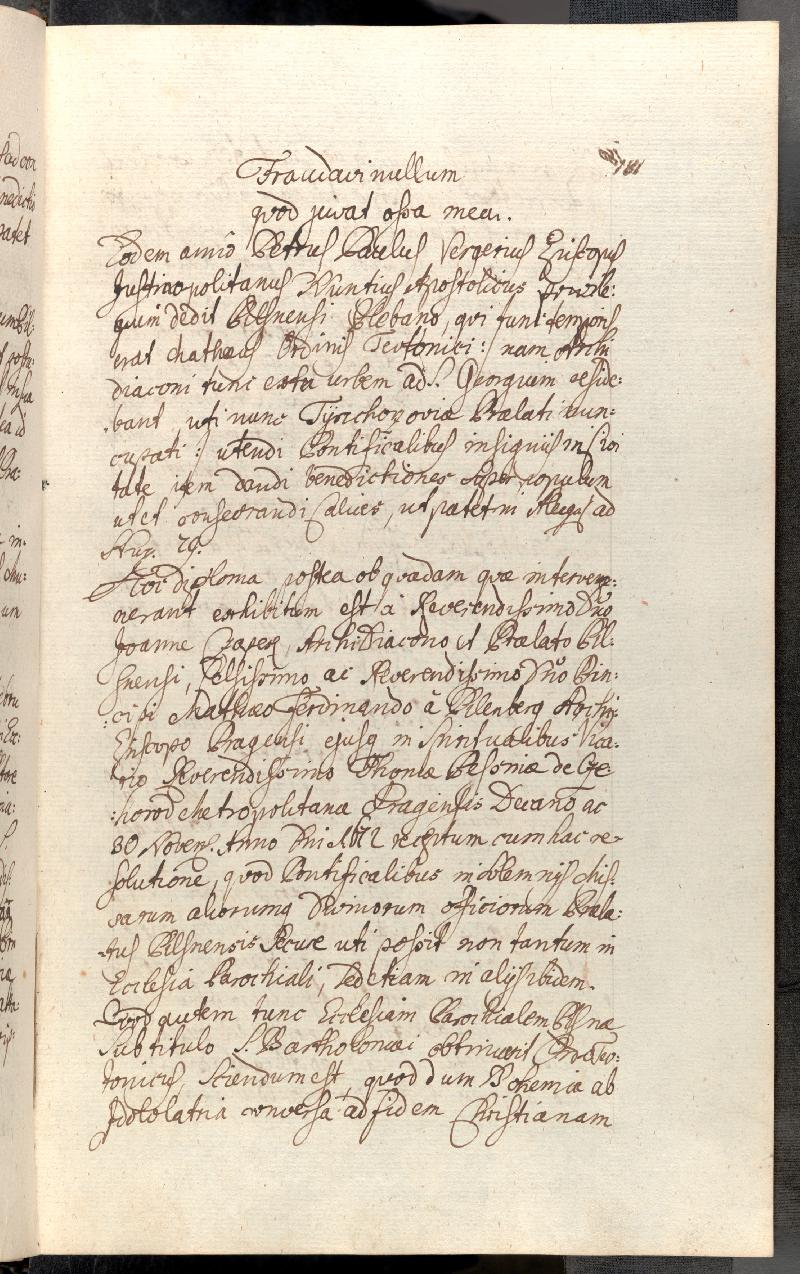 181
Fraudavi nullum
quod juvat ossa mea.
Eodem anno Petrus Paulus Vergerius Episcopus
Justinopolitanus Nuntius Apostolicus privile:
gium dedit Pilsnensi Plebano, qui tunc temporis
erat Mathæus Ordinis Teutonici: nam Archi
diaconi tunc extra urbem ad S. Georgium reside:
bant, uti nunc Prælati nun:
cupati: utendi Pontificalibus insignijs in Civi
tate item dandi benedictiones super populum
ut et consecrandi Calices, ut patet in ad
29.
diploma postea ob quædam quæ interve
nerant exhibitum est à Reverendissimo Dno
Joanne Archidiacono et Prælato Pil:
snensi, Celsissimo ac Reverendissimo Dno Prin:
cipi Mathæo Ferdinando à Bilenberg Archi
Episcopo Pragensi ejusq in Spiritualibus Vica:
rio Reverendissimo Thomæ Pessinæ de Cze
:chorod Metropolitanæ Pragensis Decano ac
30 Novem. Anno Dni 1672 receptum cum hac re-
solutione, quod Pontificalibus in solemnijs Mis:
sarum aliorumq Divinorum officiorum Præla:
tus Pilsnensis secure uti possit non tantum in
Ecclesia Parochiali, sed etiam in alijs ibidem.
Quod autem tunc Ecclesiam Parochialem Pilsnæ
sub titulo S. Bartholomæi obtinuerit Ordo Teu:
tonicus, Sciendum est, quod dum Bohemia ab
Idololatria conversa ad fidem Christianam